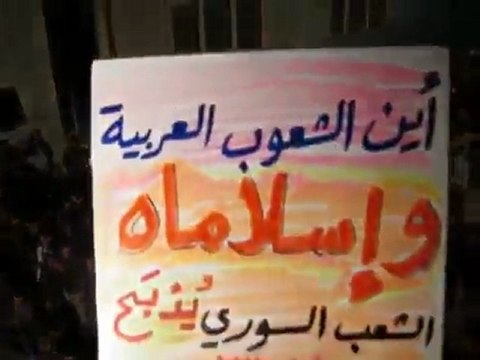 أين الشعوب العربية
وإسلاماه
الشعب السوري يُذبَح